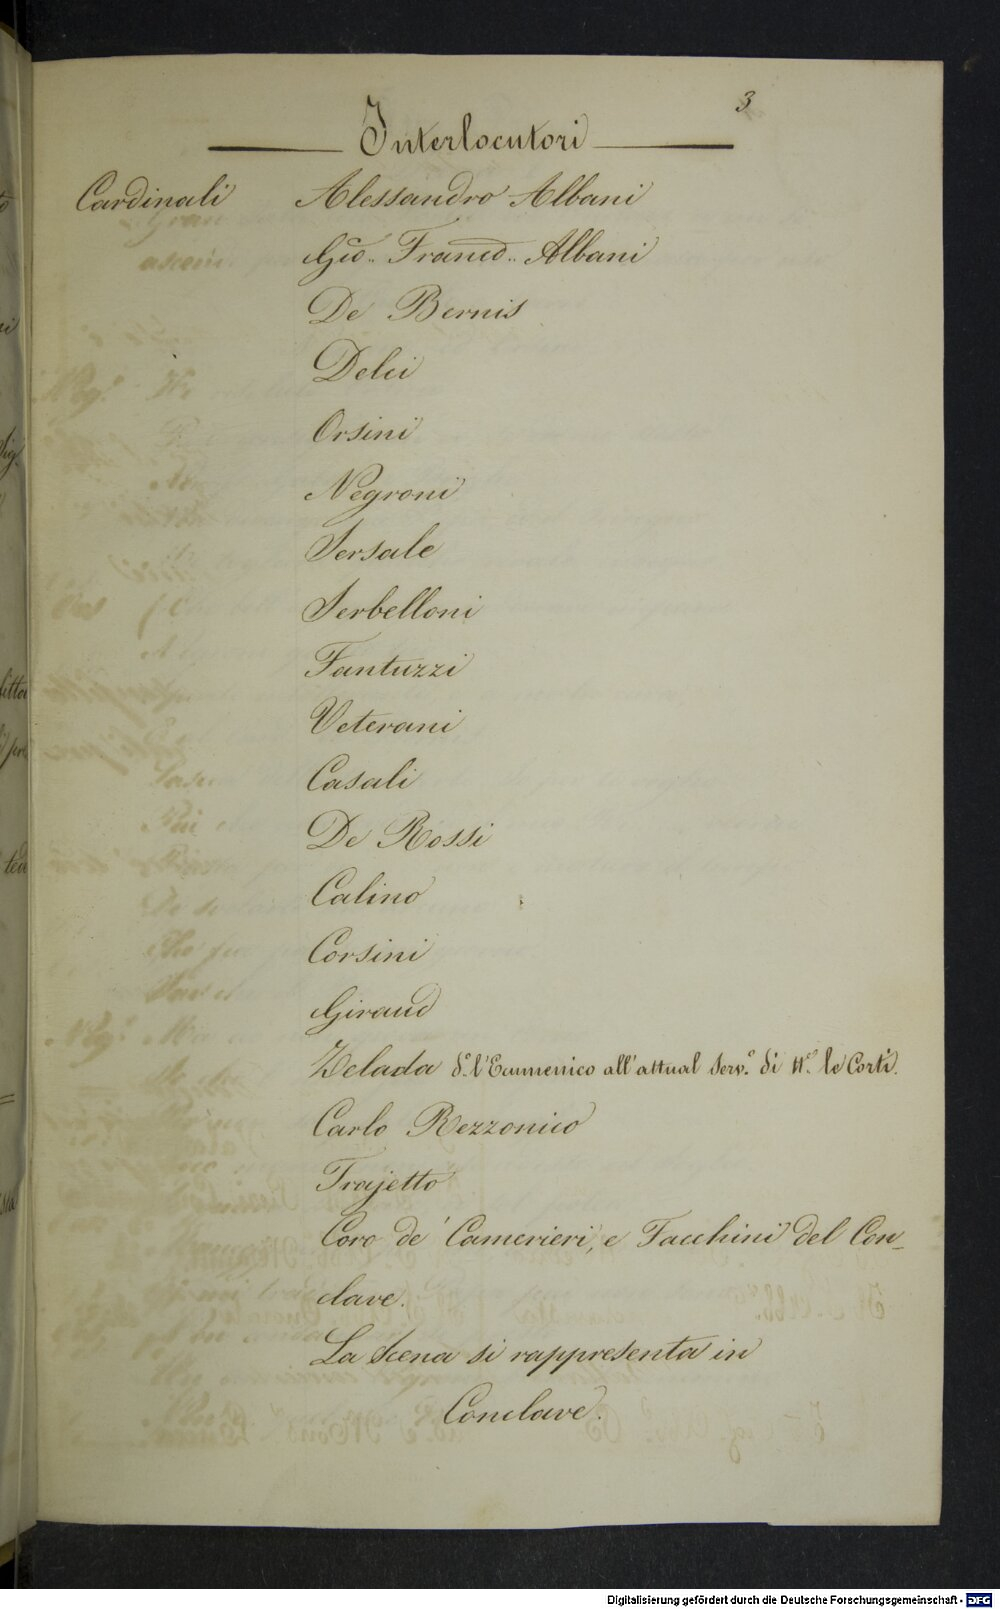 3
Interlocutori
Cardinali Alessandro Albani
Gio.. Franco.. Albani
De Bernis
Delci
Orsini
Negroni
Sersale
Serbelloni
Fantuzzi
Veterani
Casali
De Rossi
Calino
Corsini
Giraud
Zelada do. l'Ecumenico all'attual Servo. di tte. le Corti.
Carlo Rezzonico
Trajetto
Coro de' Camerieri, e Facchini del Con-
clave.
La Scena si rappresenta in
Conclave.
Digitalisierung gefördert durch die Deutsche Forschungsgemeinschaft - DFG